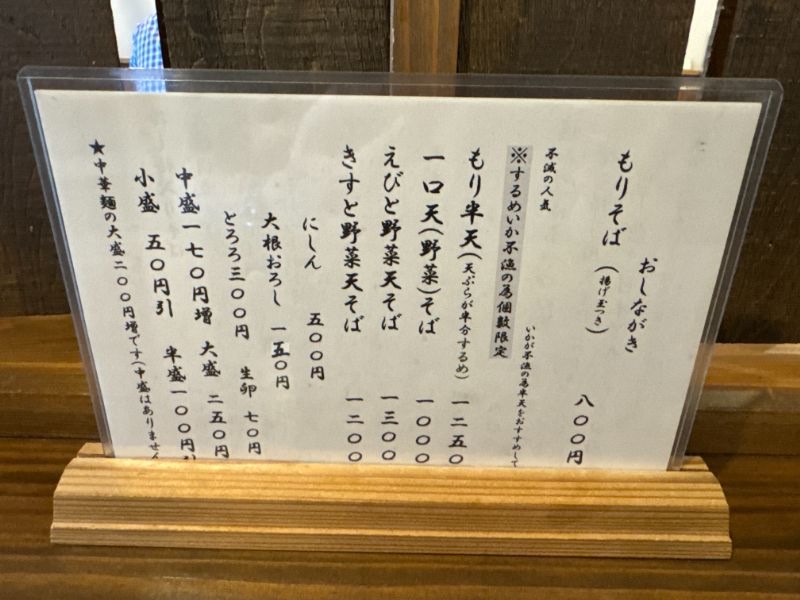 おしながき
もりそば(揚げ玉つき) 八〇〇円
不滅の人気 いかが不漁の為半天をおすすめして
※するめいか不漁の為個数限定
もり半天(天ぷらが半分するめ) 一二五〇
一口天(野菜)そば 一〇〇〇
えびと野菜天そば 一三〇〇
きすと野菜天そば 一二〇〇
にしん 五〇〇円
大根おろし 一五〇円
とろろ三〇〇円 生卵 七〇円
中盛一七〇円増 大盛 二五〇円
小盛 五〇円引 半盛一〇〇円引
★中華麺の大盛二〇〇円増です(中盛はありません